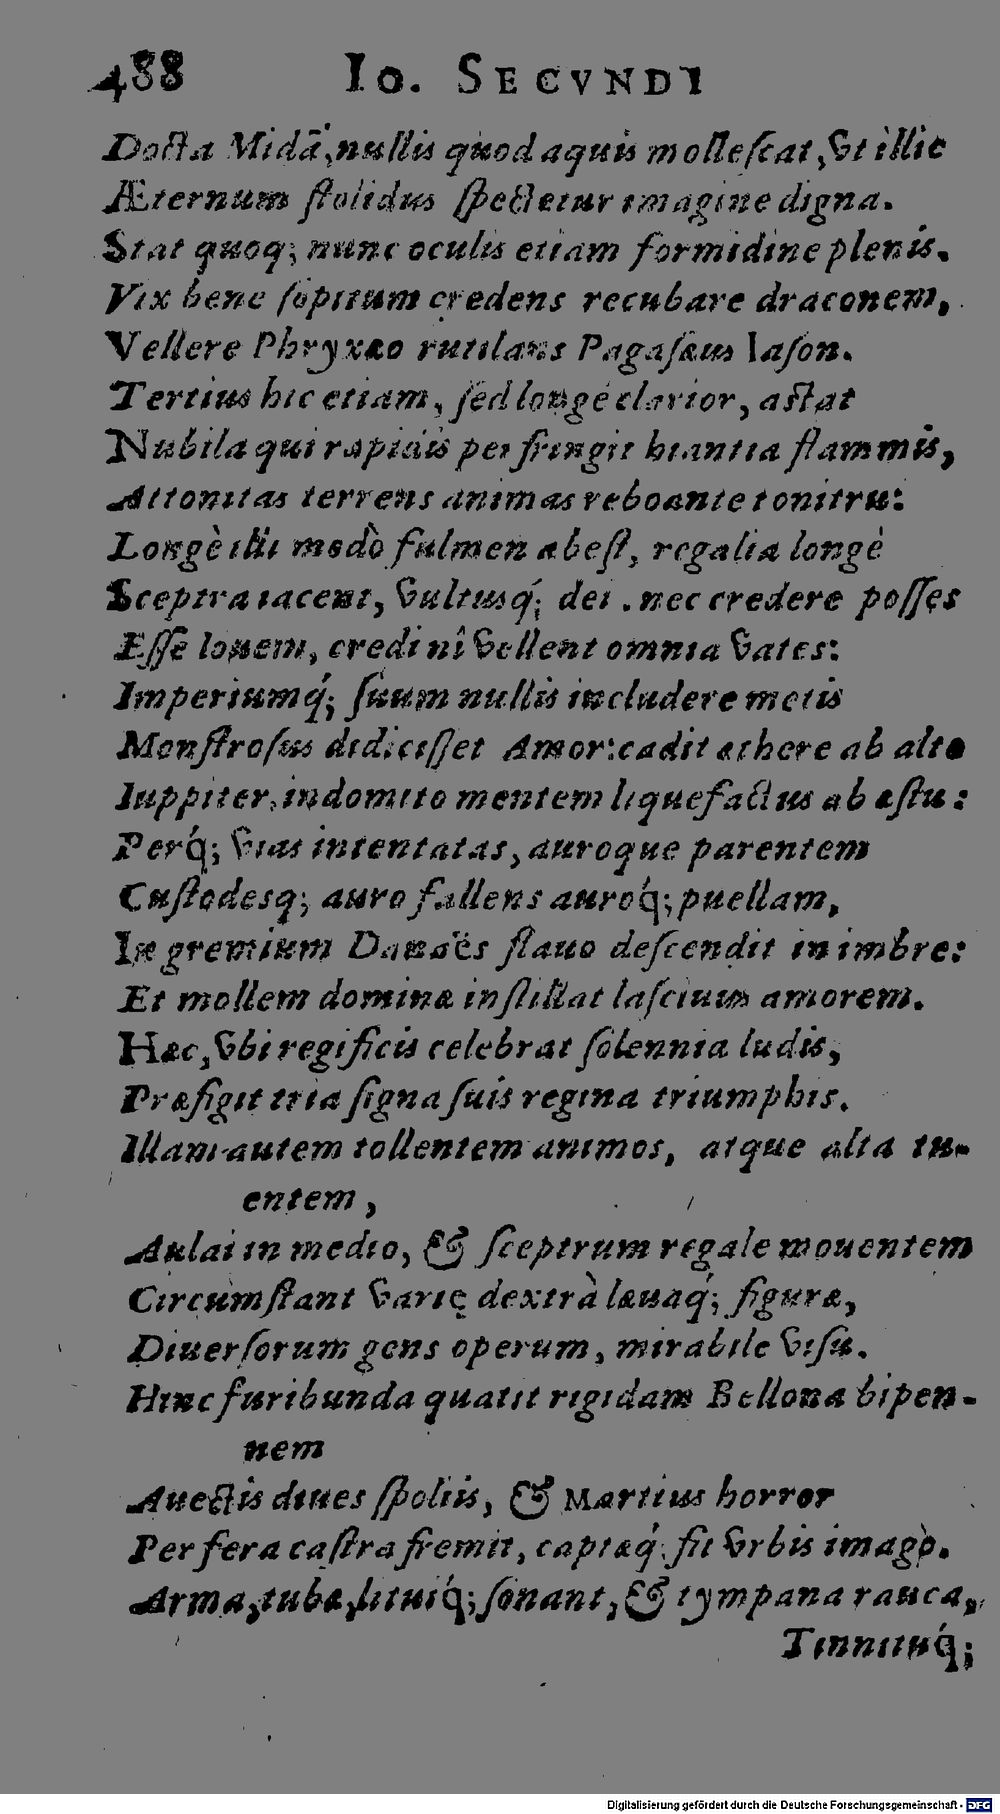 488 Io. SECVNDI
Docta Midã, nullis quod aquis mollescat, vt illic
Æternum stolidus spectetur imagine digna.
Stat quoq; nunc oculis etiam formidine plenis.
Vix bene sopitum credens recubare draconem,
Vellere Phryxæo rutilans Pagasæus Iason.
Tertius hic etiam, sed longè clarior, astat
Nubila qui rapidis perfringit hiantia flammis,
Attonitas terrens animas reboante tonitru:
Longè illi modò fulmen abest, regalia longè
Sceptra iacent, vultusq́; dei. nec credere posses
Esse Iouem, credi nî vellent omnia vates:
Imperiumq́; suum nullis includere metis
Monstrosus didicisset Amor: cadit æthere ab alto
Iuppiter, indomito mentem liquefactus ab æstu:
Perq́; vias intentatas, auroque parentem
Custodesq; auro fallens auroq́; puellam,
In gremium Danaës flauo descendit in imbre:
Et mollem dominæ instillat lasciuus amorem.
Hæc, vbi regificis celebrat solennia ludis,
Præfigit tria signa suis regina triumphis.
Illam autem tollentem animos, atque alta tu-
entem,
Aulai in medio, & sceptrum regale mouentem
Circumstant varię dextrà læuaq́; figuræ,
Diuersorum gens operum, mirabile visu.
Hinc furibunda quatit rigidam Bellona bipen-
nem
Auectis diues spoliis, & Martius horror
Per fera castra fremit, captæq́; fit vrbis imago.
Arma, tubæ, lituiq́; sonant, & tympana rauca,
Tinnituq́;
Digitalisierung gefördert durch die Deutsche Forschungsgemeinschaft - DFG